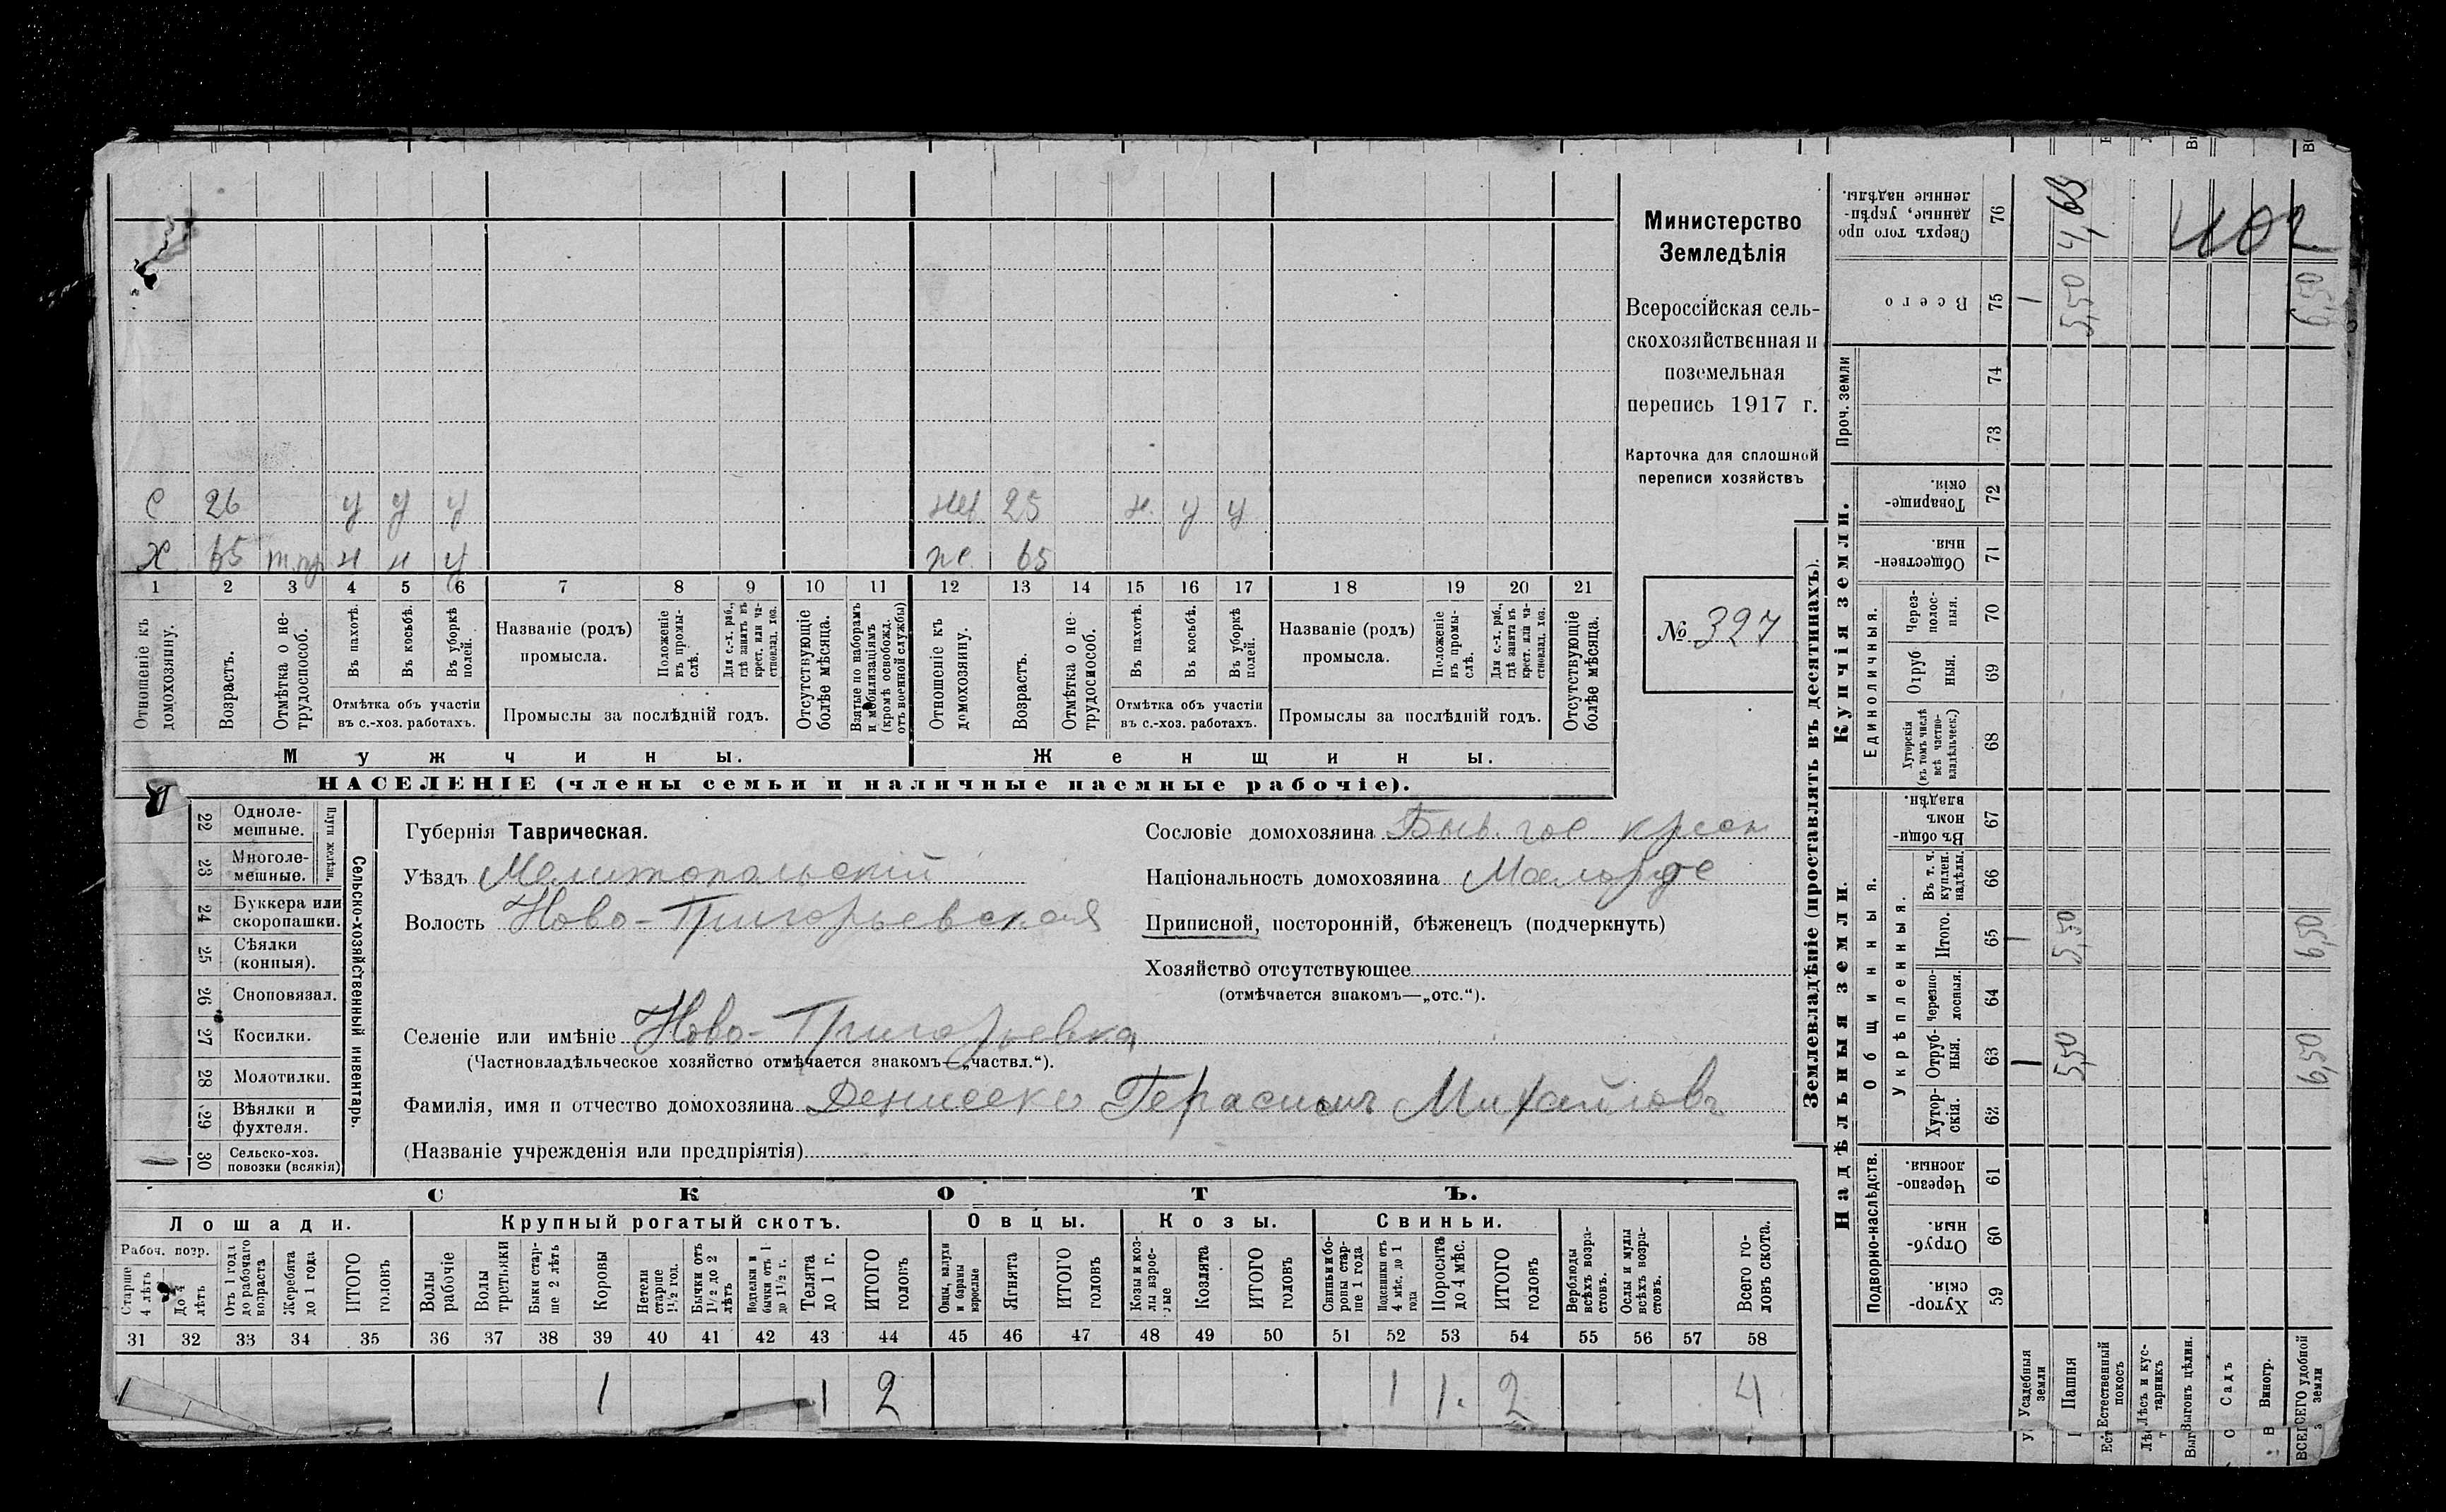 С 26 у у у нев 25 н. у у
Х. 65 н н у ж. 65
1 2 3 4 5 6 7 8 9 10 11 12 13 14 15 16 17 18 19 20 21
Отношеніе къ домохозяину.
Возрастъ.
Отмѣтка о нетрудоспособ.
Въ пахотѣ.
Въ косьбѣ.
Въ уборкѣ полей.
Отмѣтка объ участіи
въ с.-хоз. работахъ.
Названіе (родъ)
промысла.
Положеніе въ промыслѣ.
Для с.-х. раб., гдѣ занятъ въ крест. или частновлад. хоз.
Промыслы за послѣдній годъ.
Отсутствующіе болѣе мѣсяца.
Взятые по наборамъ и мобилизаціямъ (кромѣ освобожд. отъ военной службы)
Отношеніе къ домохозяину.
Возрастъ.
Отмѣтка о нетрудоспособ.
Въ пахотѣ.
Въ косьбѣ.
Въ уборкѣ полей.
Отмѣтка объ участіи
въ с.-хоз. работахъ.
Названіе (родъ)
промысла.
Положеніе въ промыслѣ.
Для с.-х. раб., гдѣ занята въ крест. или частновлад. хоз.
Промыслы за послѣдній годъ.
Отсутствующіе болѣе мѣсяца.
Мужчины.
Женщины.
НАСЕЛЕНІЕ (члены семьи и наличные наемные рабочіе).
Министерство
Земледѣлія
Всероссійская сель-
скохозяйственная и
поземельная
перепись 1917 г.
Карточка для сплошной
переписи хозяйствъ
№ 327
Сельско-хозяйственный инвентарь.
Плуги желѣзн.
22 Одноле-
мешные.
23 Многоле-
мешные.
24 Буккера или
скоропашки.
25 Сѣялки
(конныя).
26 Сноповязал.
27 Косилки.
28 Молотилки.
29 Вѣялки и
фухтеля.
30 Сельско-хоз.
повозки (всякія)
Губернія Таврическая.
Уѣздъ Мелитопольскій
Волость Ново-Григорьевская
Селеніе или имѣніе Ново-Григорьевка
(Частновладѣльческое хозяйство отмѣчается знакомъ—„частвл.“).
Фамилія, имя и отчество домохозяина Денисеко Герасимъ Михайловъ
(Названіе учрежденія или предпріятія)
Сословіе домохозяина Быв. гос крест
Національность домохозяина Малорос
Приписной, посторонній, бѣженецъ (подчеркнуть)
Хозяйство отсутствующее
(отмѣчается знакомъ—„отс.“).
СКОТЪ.
Лошади.
Крупный рогатый скотъ.
Овцы.
Козы.
Свиньи.
Рабоч. возр.
Старше 4 лѣтъ
До 4 лѣтъ
Отъ 1 года до рабочаго возраста
Жеребята до 1 года
ИТОГО головъ
Волы рабочіе
Волы третьяки
Быки старше 2 лѣтъ
Коровы
Нетели старше 1½ год.
Бычки отъ 1½ до 2 лѣтъ
Подтелки и бычки отъ 1 до 1½ г.
Телята до 1 г.
ИТОГО головъ
Овцы, валухи и бараны взрослые
Ягнята
ИТОГО головъ
Козы и козлы взрослые
Козлята
ИТОГО головъ
Свиньи и боровы старше 1 года
Подсвинки отъ 4 мѣс. до 1 года
Поросята до 4 мѣс.
ИТОГО головъ
Верблюды всѣхъ возрастовъ.
Ослы и мулы всѣхъ возрастовъ.
Всего головъ скота.
31 32 33 34 35 36 37 38 39 40 41 42 43 44 45 46 47 48 49 50 51 52 53 54 55 56 57 58
1 1 2 1 1. 2 4
Землевладѣніе (проставлять въ десятинахъ).
Купчія земли.
Надѣльныя земли.
Сверхъ того проданные, укрѣпленные надѣлы. 76 4,65
402
Всего 75 1 5,50 6,50
Проч. земли
74
73
Товарищескія. 72
Общественныя. 71
Единоличныя.
Черезполосныя. 70
Отрубныя. 69
Хуторскія (въ томъ числѣ всѣ частновладѣльческ.) 68
Общинныя.
Въ общинномъ владѣн. 67
Укрѣпленныя.
Въ т. ч. куплен. надѣлы. 66
Итого. 65 1 5,50 6,50
Черезполосныя. 64
Отрубныя. 63 1 5,50 6,50
Хуторскія. 62
Подворно-наслѣдств.
Черезполосныя. 61
Отрубныя. 60
Хуторскія 59
Усадебныя земли
Пашня
Естественный покосъ
Лѣсъ и кустарникъ
Выгонъ цѣлин.
Садъ
Виногр.
ВСЕГО удобной земли